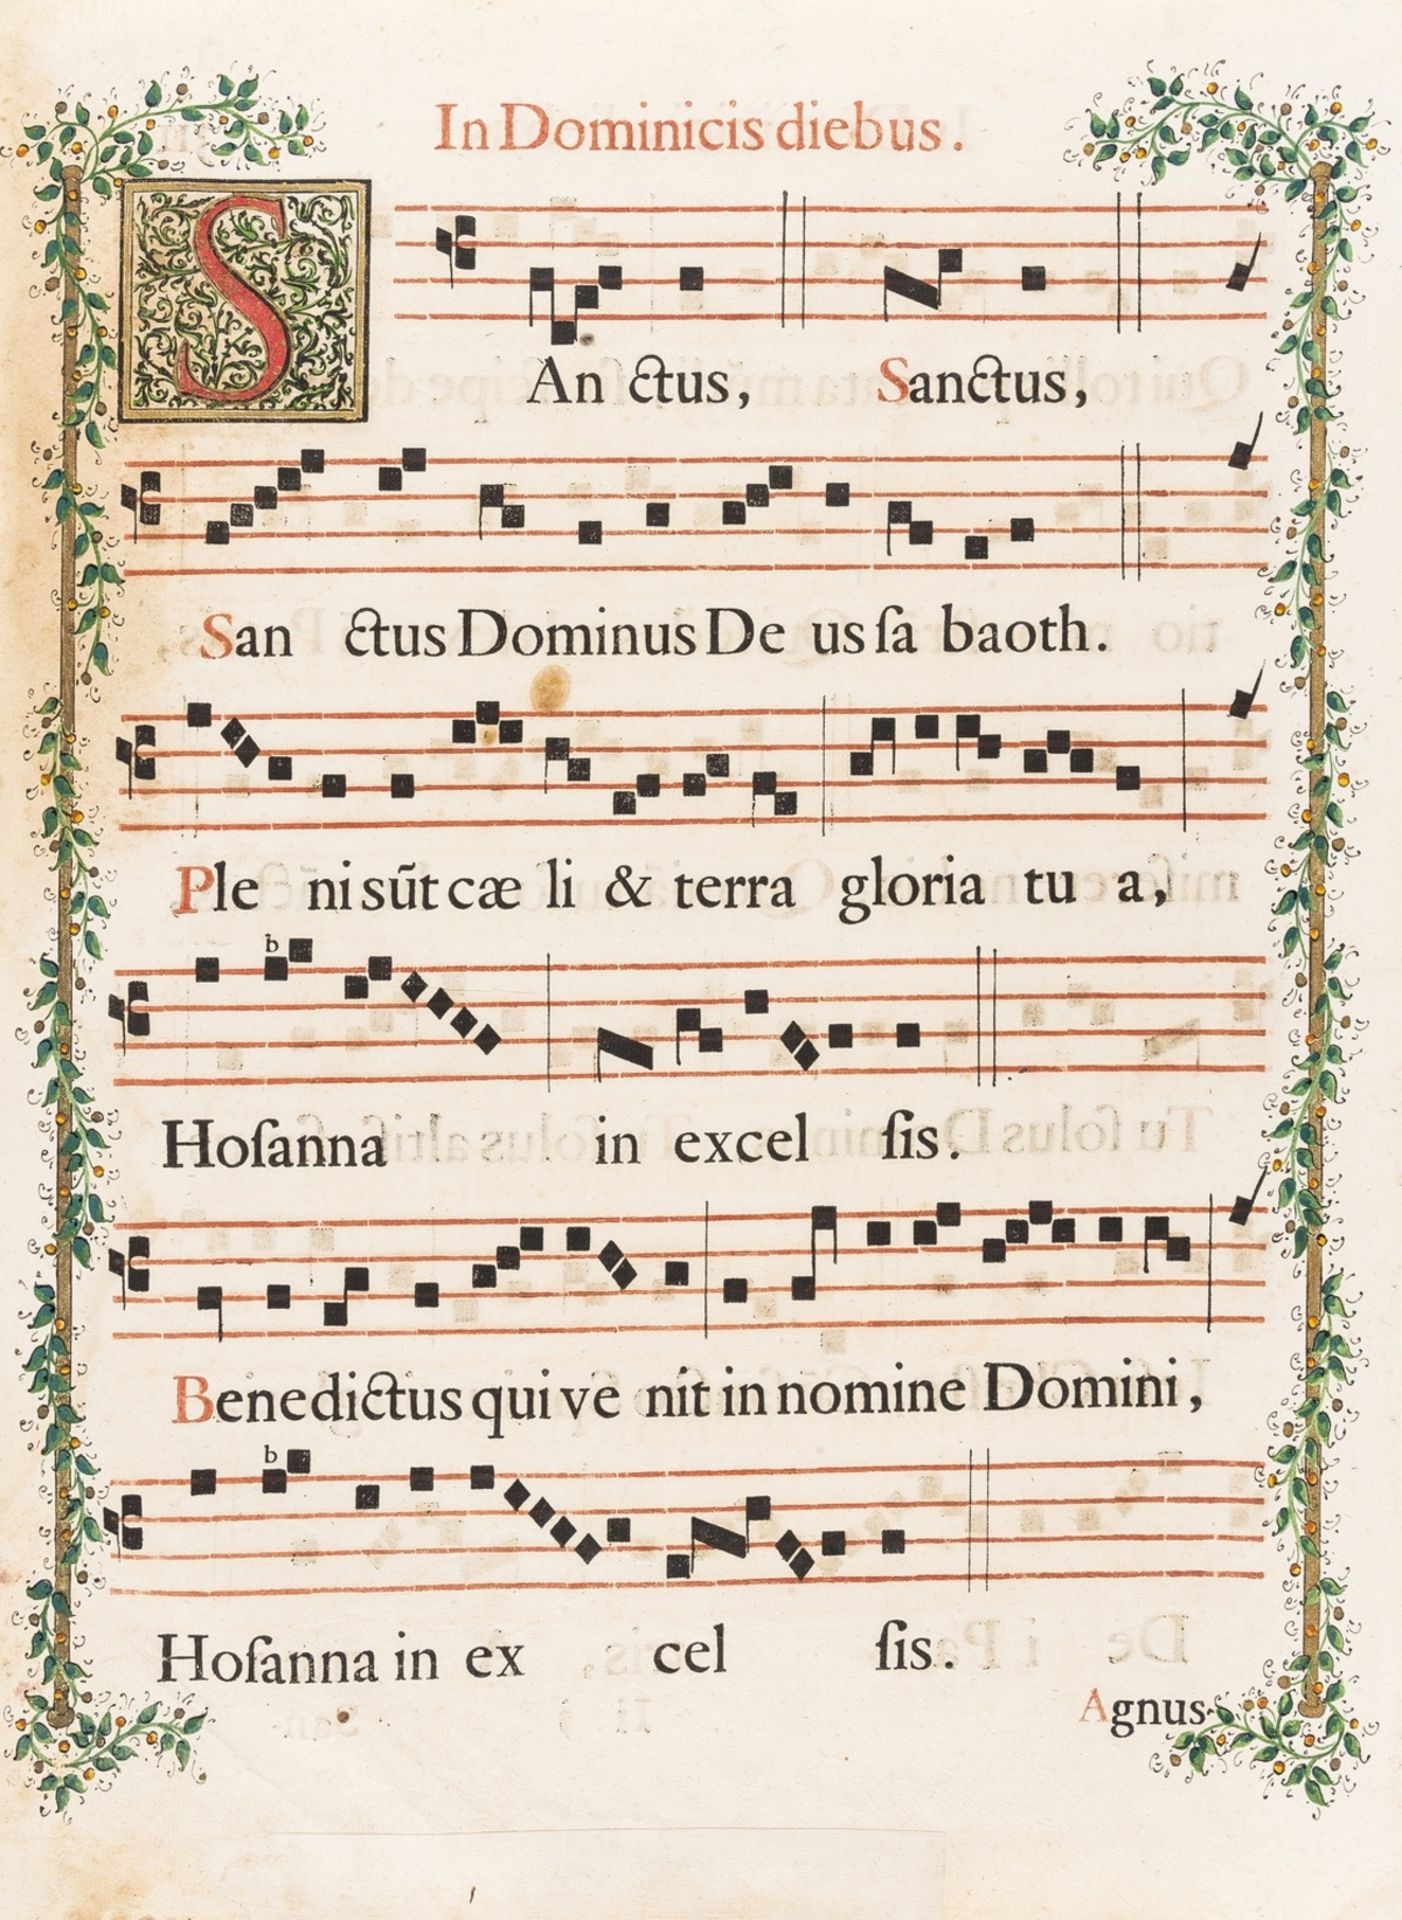 In Dominicis diebus.
SAn ctus, Sanctus,
San ctus Dominus De us ſa baoth.
Ple ni sũt cæ li & terra gloria tu a,
b
Hoſanna in excel ſis.
Benedictus qui ve nit in nomine Domini,
b
Hoſanna in ex cel ſis.
Agnus